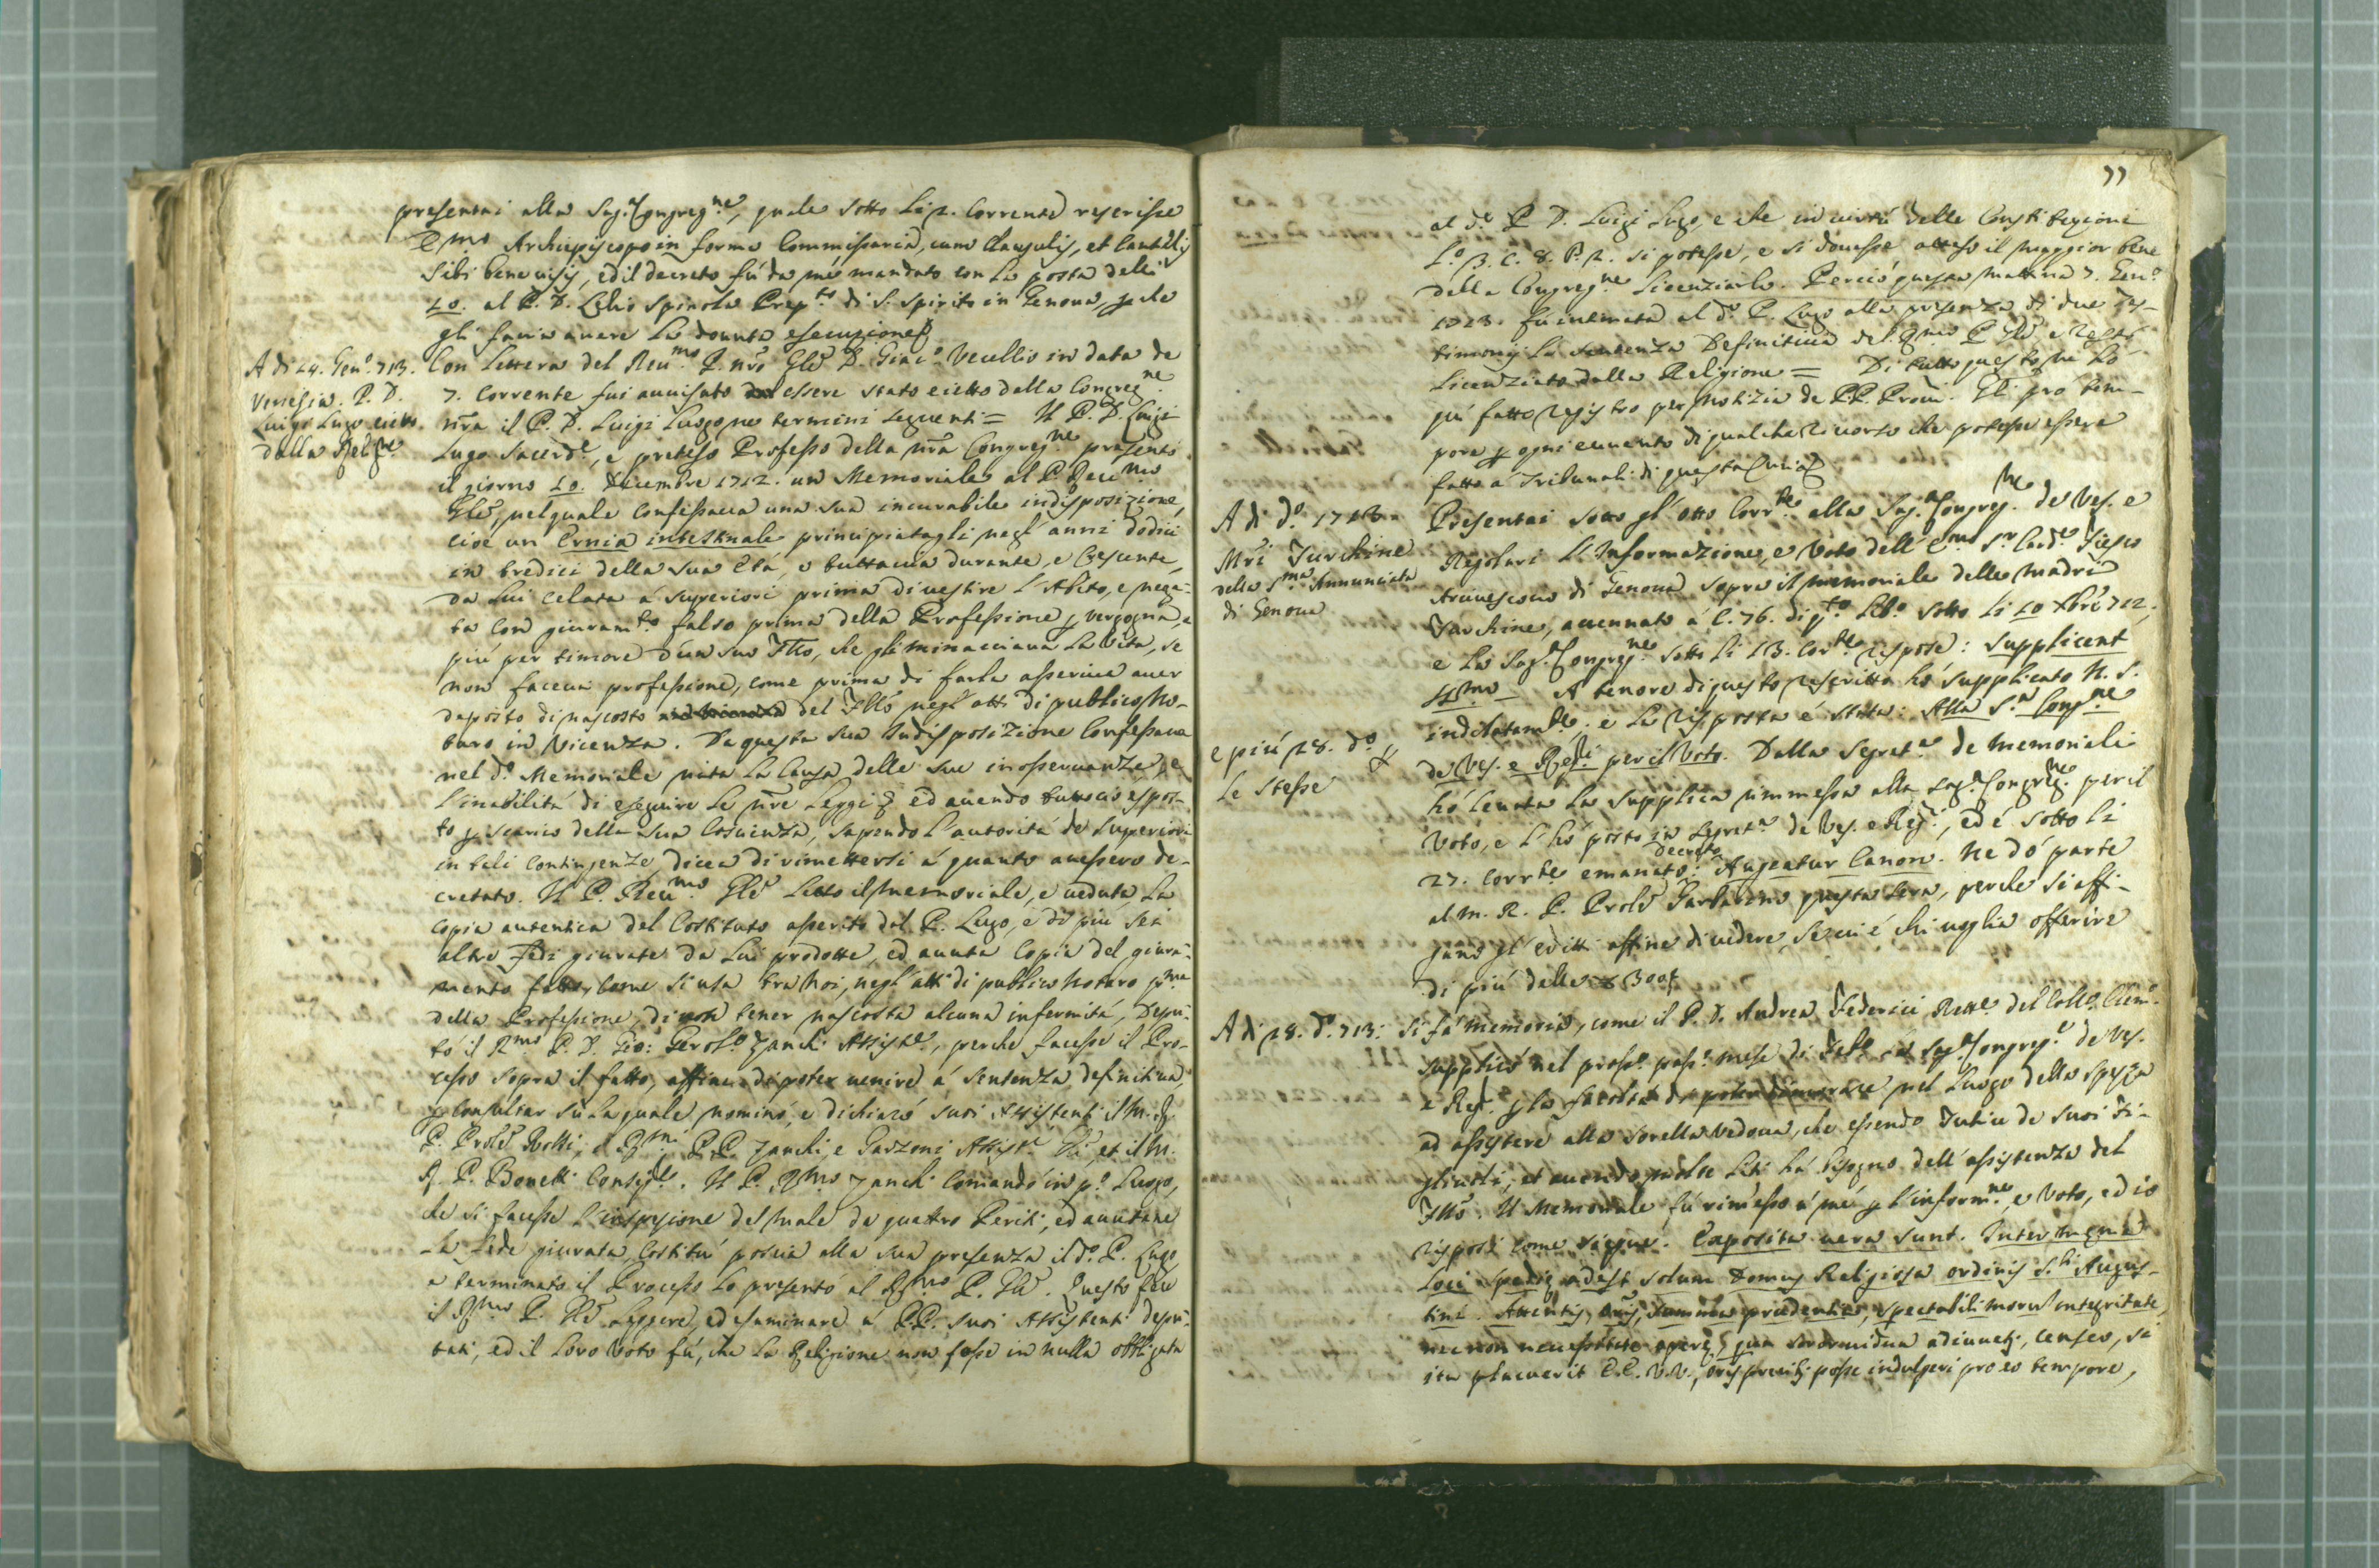 presentai alla Sag. Congreg.ne, quale sotto li 2. corrente rescrisse
E.mo Archiepiscopo in forma Commissaria, cum clausulis, et cautelis
sibi benevisis, ed il decreto fù da mè mandato con la posta delli
20. al P. D. Lelio Spinola Prep.to di S. Spirito in Genova, che
gli facia avere la dovuta esecuzione
A di 24. Gen.o 713.
Venezia. P. D.
Luigi Lugo eietto
dalla Relig.ne
Con lettera del Reu.mo P. nrõ Glẽ D. Giac.o Vecellio in data de
7. corrente fui avvisato essere stato eietto dalla Congreg.ne
nrã il P. D. Luigi Lugo ne termini seguenti = Il P. D. Luigi
Lugo Sacerd.e, e preteso Professo della nrã Congreg.ne presentò
il giorno 20. Decembre 1712. un Memoriale al P. Reu.mo
Glẽ, nel quale confessava una sua incurabile indisposizione,
cioe un Ernia intestinale principiatagli negl'anni dodici
in tredici della sua Età, e tuttavia durante, e crescente,
da lui celata á Superiori prima di vestire l'Abito, e nega-
ta con giuram.to falso prima della Professione vergogna, e
più per timore d'un suo Fllo, che gli minacciava la vita, se
non faceva professione, come prima di farla asseriva aver
deposto di nascosto del Fllo negl'atti di publico No-
taro in Vicenza. Da questa sua Indisposizione confessava
nel d.o Memoriale nata la causa delle sue inosservanze, e
l'inabilità di eseguire le nrẽ Leggi ed avendo tuttociò espos-
to scarico della sua coscienza, sapendo l'autorità de Superiori
in tali contingenze, dicea di rimettersi á quanto avessero de-
cretato. Il P. Reu.mo Glẽ letto il Memoriale, e veduta la
copia autentica del Costituto asserito dal P. Lugo, e di più sei
altre Fedi giurate da lui prodotte, ed avuta copia del giura-
mento fatto, come si usa tra Noi, negl'atti di publico Notaro p.ma
della Professione, di non tener nascosta alcuna infermità, Depu-
tò il R.mo P. D. Gio: Gerol.o Zanchi Assist.e, perche facesse il Pro-
cesso sopra il fatto, affine di poter venire á sentenza definitiva,
consultar sù la quale nominò, e dichiarò suoi Assistenti il M. R.
P. Prole Rotti, i R.mi P.P. Zanchi, e Garzoni Assist.i Gli, et il M.
R. P. Bonetti Consig.e. Il P. R.mo Zanchi comandò in p.o luogo,
che si facesse l'inspezione del male da quattro Periti, ed avutane
la Fede giurata, costituì poscia alla sua presenza il d.o P. Lugo,
e terminato il Processo lo presentò al R.mo P. Glẽ. Questo fece
il R.mo P. Glẽ leggere, ed esaminare a P.P. suoi Assistenti depu-
tati, ed il loro Voto fù, che la Religione non fosse in nulla obbligata
77
al d.o P. D. Luigi Lugo, e che in virtù delle Constituzioni
L.o 3. C. 8. P. 2. si potesse, e si dovesse atteso il maggior bene
della Congreg.ne licenziarlo. Perciò questa mattina 7. Gen.o
1713. fù intimata al d.o P. Lugo alla presenza di due Tes-
timonj la sentenza Definitiva del R.mo P. Glẽ, e restò
licenziato dalla Religione = Di tutto questo ne hò
quì fatto registro per notizia de P.P. Proũi. Gli prò tem-
pore ogni evvento di qualche ricorso che potesse essere
fatto á Tribunali di questa Curia
A di d.o 1713.
Mrĩ Turchine
della S.ma Annunciata
di Genova
Presentai sotto gl'otto corr.te alla Sag. Congreg.ne de Ves. e
Regolari l'Informazione, e Voto dell'E.mo S.r Card.e Fiesco
Arcivescovo di Genova sopra il memoriale delle Madri
Turchine, accennato á C. 76. di q.to lib.o sotto li 20 Xbrẽ 712,
e la Sag. Congreg.ne sotto li 13. cor.te rispose: Supplicent
SS.mo A tenore di questo rescritto hò supplicato N. S.
indilatam.te, e la risposta é stata: Alla S. Cong.ne
e più 28. d.o
le stesse
de Ves. e Reg.ri per il Voto. Dalla Segret.a de Memoriali
hò levata la supplica rimmessa alla Sag. Congreg.ne per il
Voto, e l'hò posta in Segret.a de Ves. e Reg.ri, ed é sotto li
decreto
27. corr.te emanato: Augeatur Canon. Ne dò parte
al M. R. P. Prole Garbarino questa sera, perche si affi-
gano gl'editti affine di vedere, se vi é chi voglia offerire
di più delle 300
A di 28. d.o 713.
Si fà memoria, come il P. D. Andrea Federici Rett.e del Coll.o Clem.o
supplicò nel pross.o pass.o mese di la Sag. Congreg.e de Ves.
e Reg. la facoltà di poter dimorare nel Luogo della Spezza
ad assistere alla Sorella Vedova, che essendo Tutrice de suoi Fi-
gliuoli, et avendo molte liti hà bisogno dell'assistenza del
Fllo. Il Memoriale fù rimesso á mè l'inform.ne, e Voto, ed io
risposi come siegue. Exposita vera sunt. Inter mœnia
Loci Speziæ adest solum Domus Religiosa ordinis S.ti Augus-
tini. Attentis summa prudentia, spectabili morum integritate,
necnon necessitate operis, qua soror vidua adiuvetur, censeo, si
ita placuerit E.E. V.V., oris precibus posse indulgeri pro eo tempore,